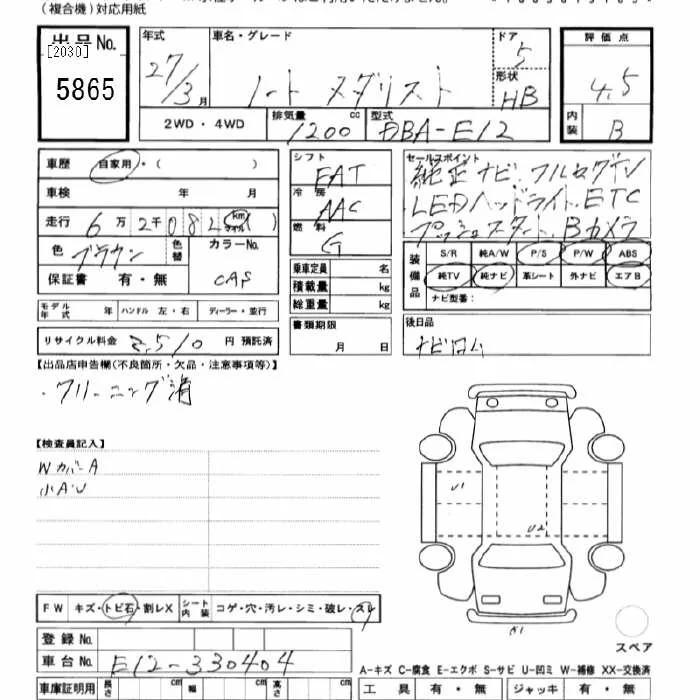 (複合機)対応用紙
出品No.
[2030]
5865
年式
27/3月
車名・グレード
ノート メダリスト
ドア
5
形状
HB
評価点
4.5
内装
B
2WD・4WD
排気量
1200cc
型式
DBA-E12
車歴 自家用・( )
車検 年 月
走行 6万2千082 km マイル ( )
色
ブラウン
色替
カラーNo.
CAS
保証書 有・無
モデル年式
ハンドル 左・右
ディーラー・並行
リサイクル料金 8,510 円 預託済
シフト
FAT
冷房
AAC
燃料
G
乗車定員 名
積載量 kg
総重量 kg
書類期限
月 日
セールスポイント
純正ナビ.フルセグTV
LEDヘッドライト.ETC
プッシュスタート.Bカメラ
装備品
S/R 純A/W P/S P/W ABS
純TV 純ナビ 革シート 外ナビ エアB
ナビ型番:
後日品
ナビロム
【出品店申告欄(不良箇所・欠品・注意事項等)】
・クリーニング済
【検査員記入】
WカバーA
小A.U
U1
U2
A1
スペア
FW キズ・トビ石・割レX
シート内装 コゲ・穴・汚レ・シミ・破レ・スレ
登録No.
車台No. E12-330404
車庫証明用 長さ cm 幅 cm 高さ cm
A-キズ C-腐食 E-エクボ S-サビ U-凹ミ W-補修 XX-交換済
工具 有・無 ジャッキ 有・無